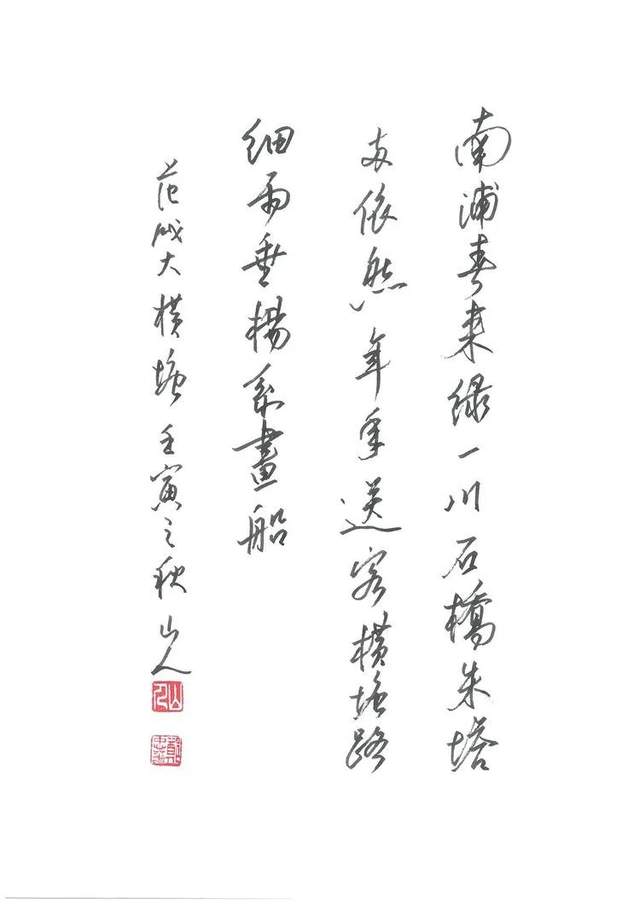 南浦春来绿一川石橋朱塔
两依然年年送客横塘路
细雨垂楊系畫船
范成大横塘壬寅之秋山人
山人